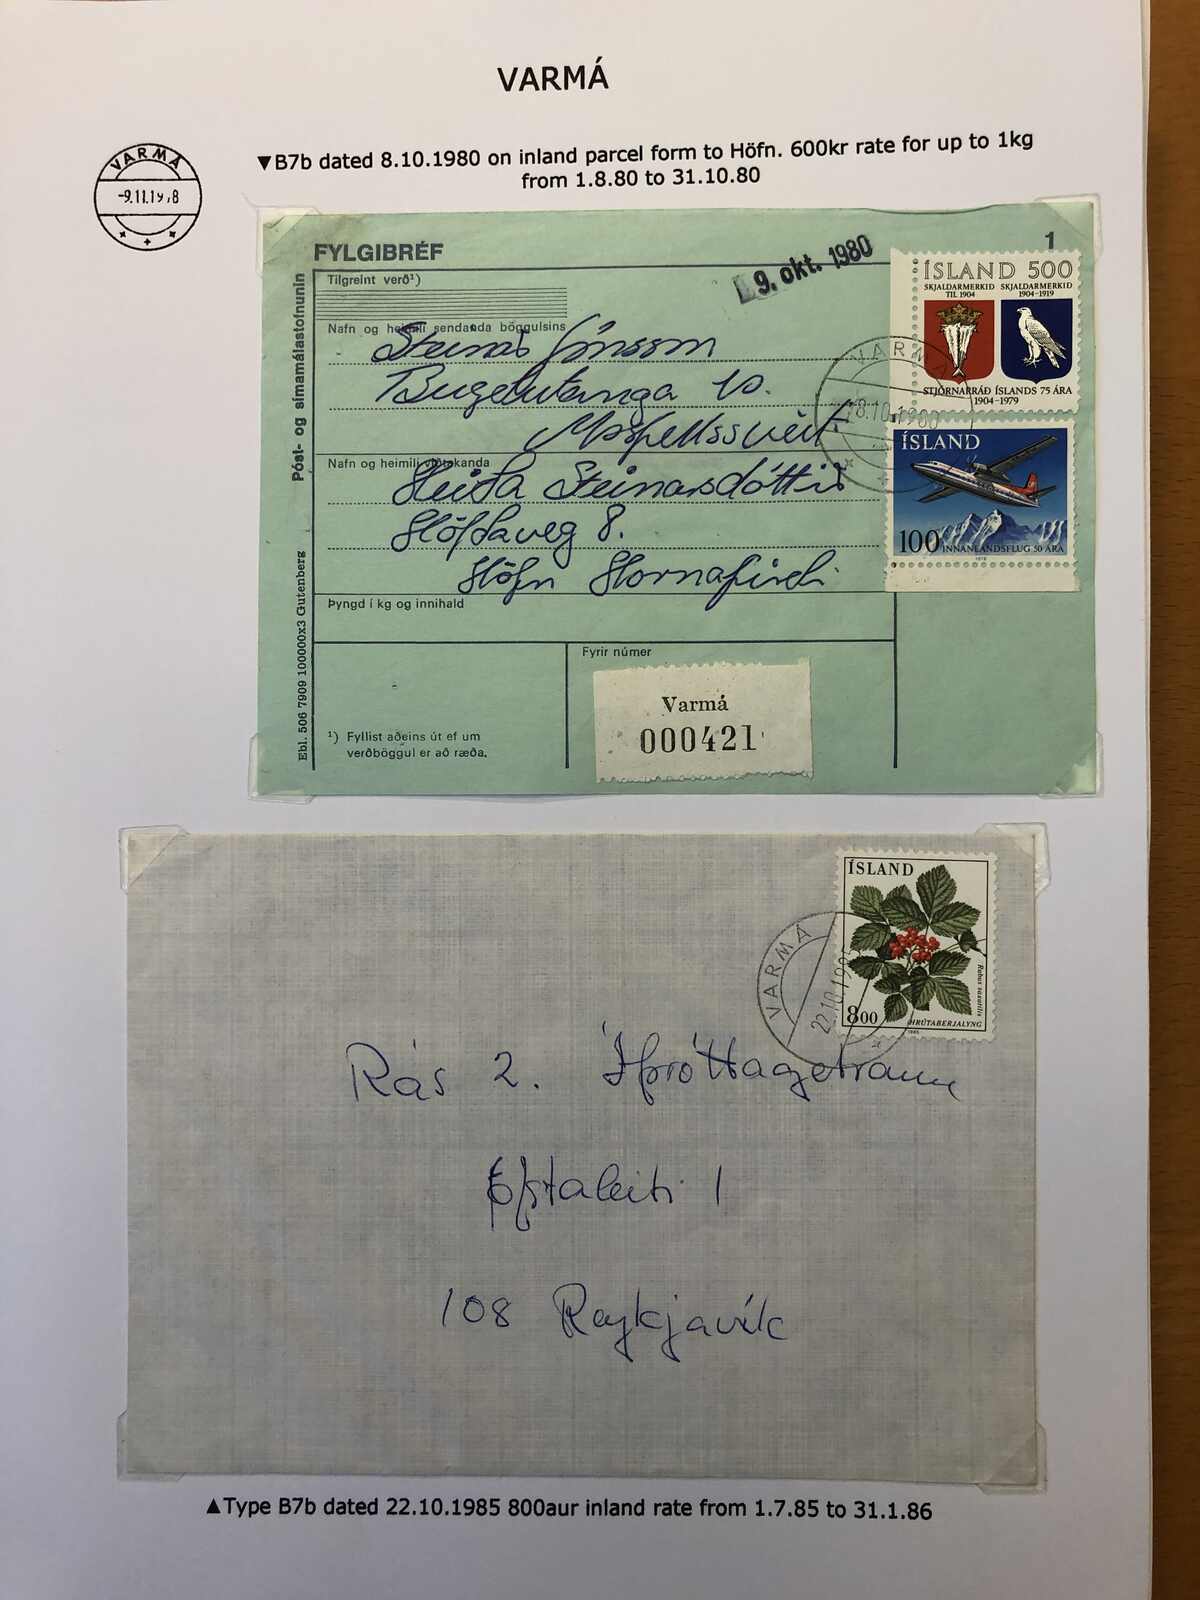 VARMÁ
VARMÁ
-9.11.19
▼B7b dated 8.10.1980 on inland parcel form to Höfn. 600kr rate for up to 1kg
from 1.8.80 to 31.10.80
FYLGIBRÉF
1
9. okt. 1980
Tilgreint verð¹)
Nafn og heimili sendanda böggulsins
Steinar Jónsson
10.
Mosfellssveit
Nafn og heimili viðtakanda
Heiða Steinarsdóttir
Höfðaveg 8.
Höfn Hornafirði
Þyngd í kg og innihald
Fyrir númer
Varmá
000421
¹) Fyllist aðeins út ef um
verðböggul er að ræða.
Póst- og símamálastofnunin
Ebl. 506 7909 100000x3 Gutenberg
ÍSLAND 500
SKJALDARMERKIÐ TIL 1904
SKJALDARMERKIÐ 1904-1919
STJÓRNARRÁÐ ÍSLANDS 75 ÁRA
1904-1979
VARMÁ
8.10.1980
ÍSLAND
100 INNANLANDSFLUG 50 ÁRA
1978
ÍSLAND
Rubus saxatilis
800 HRÚTABERJALYNG
1985
VARMÁ
22.10.1985
Rás 2. Íþróttagetraun
Efstaleiti 1
108 Reykjavík
▲Type B7b dated 22.10.1985 800aur inland rate from 1.7.85 to 31.1.86